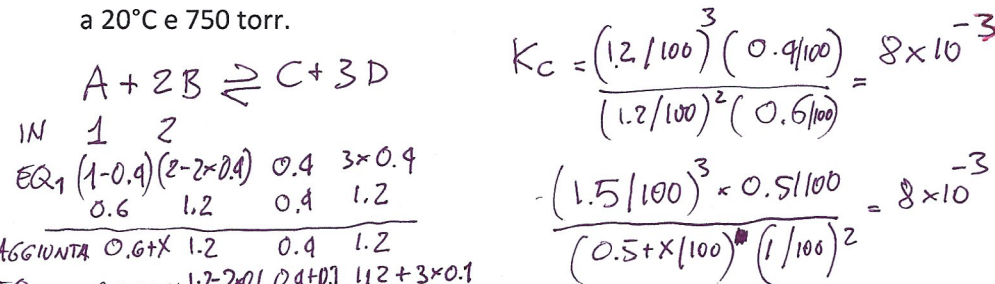 a 20°C e 750 torr.
A + 2B ⇌ C + 3D
IN 1 2
EQ1 (1-0.4) (2-2×0.4) 0.4 3×0.4
0.6 1.2 0.4 1.2
AGGIUNTA 0.6+X 1.2 0.4 1.2
1.2-2×0.1 0.4+0.1 1.2+3×0.1
Kc = (1.2/100)³ (0.4/100) / (1.2/100)² (0.6/100) = 8×10⁻³
(1.5/100)³ × 0.5/100 / (0.5+X/100) (1/100)² = 8×10⁻³